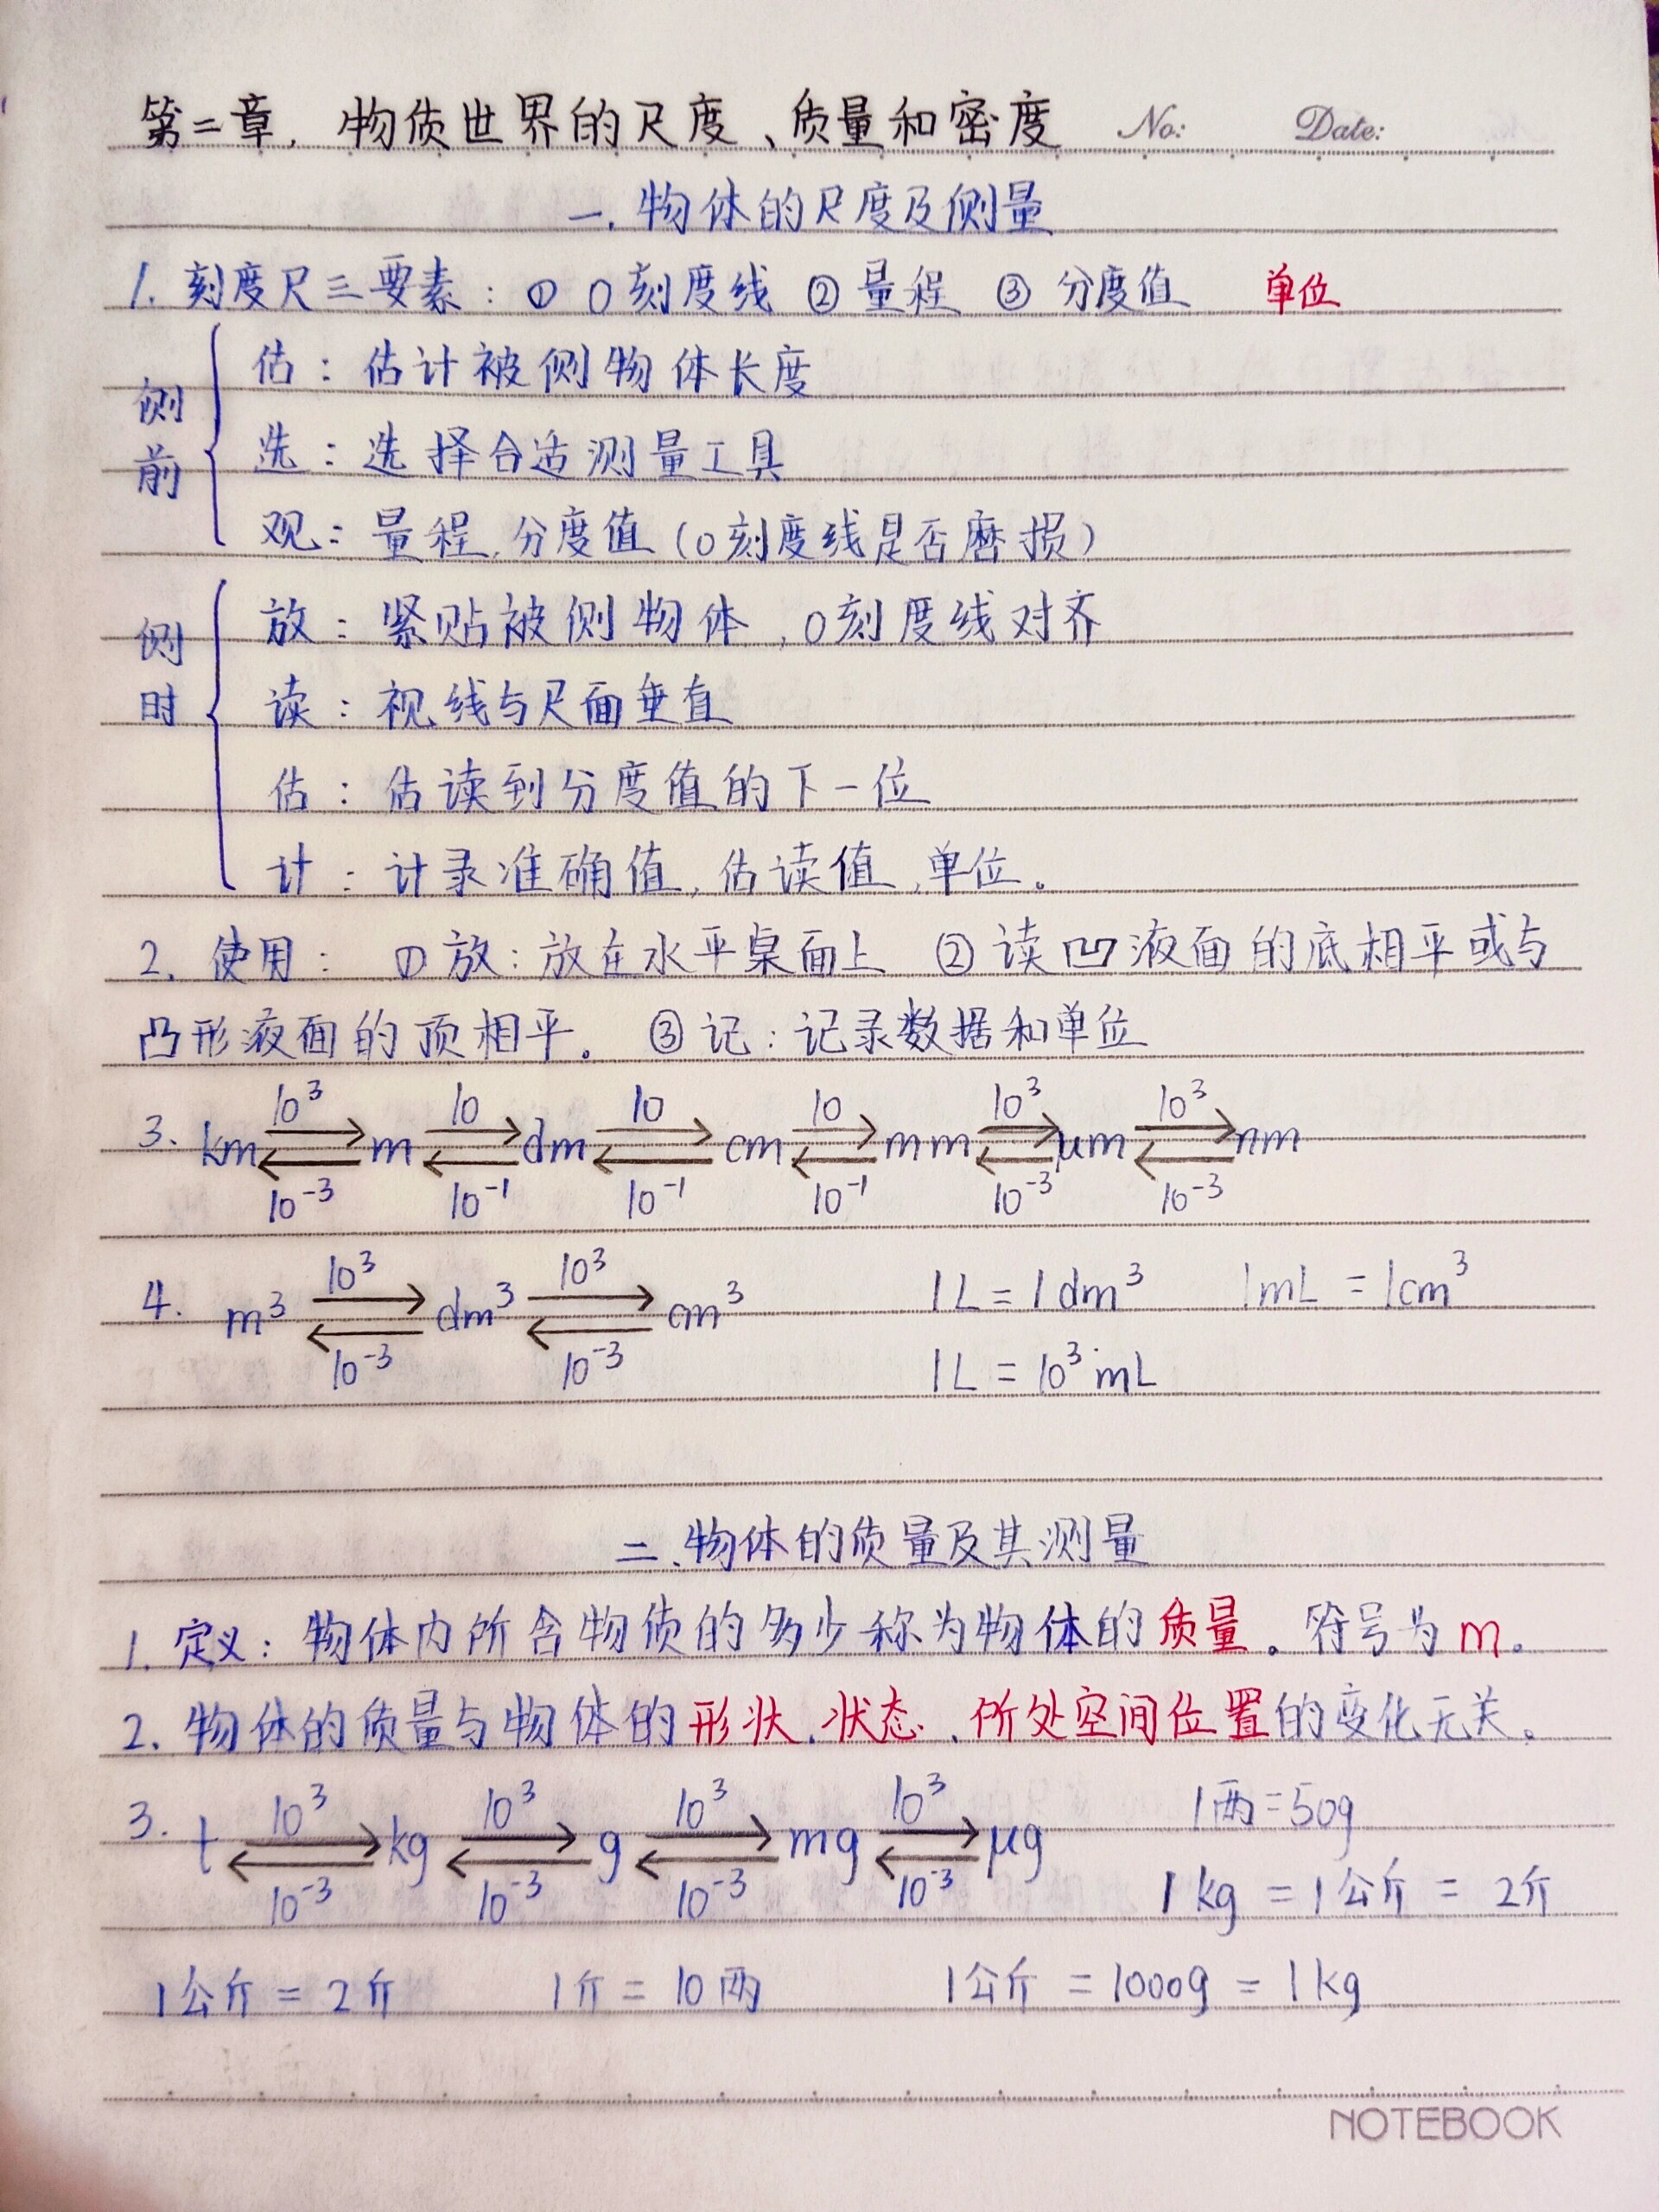 第二章、物质世界的尺度、质量和密度 No: Date:
一、物体的尺度及侧量
1. 刻度尺三要素：① 0刻度线 ② 量程 ③ 分度值 单位
侧前
估：估计被侧物体长度
选：选择合适测量工具
观：量程、分度值（0刻度线是否磨损）
侧时
放：紧贴被侧物体、0刻度线对齐
读：视线与尺面垂直
估：估读到分度值的下一位
计：计录准确值、估读值、单位。
2. 使用： ① 放：放在水平桌面上 ② 读凹液面的底相平或与
凸形液面的顶相平。 ③ 记：记录数据和单位
10³ 10 10 10 10³ 10³
3. km ⇌ m ⇌ dm ⇌ cm ⇌ mm ⇌ μm ⇌ nm
10⁻³ 10⁻¹ 10⁻¹ 10⁻¹ 10⁻³ 10⁻³
10³ 10³
4. m³ ⇌ dm³ ⇌ cm³ 1L = 1dm³ 1mL = 1cm³
10⁻³ 10⁻³ 1L = 10³mL
二、物体的质量及其测量
1. 定义：物体内所含物质的多少称为物体的质量。符号为m。
2. 物体的质量与物体的形状、状态、所处空间位置的变化无关。
10³ 10³ 10³ 10³ 1两=50g
3. t ⇌ kg ⇌ g ⇌ mg ⇌ μg
10⁻³ 10⁻³ 10⁻³ 10⁻³ 1kg = 1公斤 = 2斤
1公斤 = 2斤 1斤 = 10两 1公斤 = 1000g = 1kg
NOTEBOOK